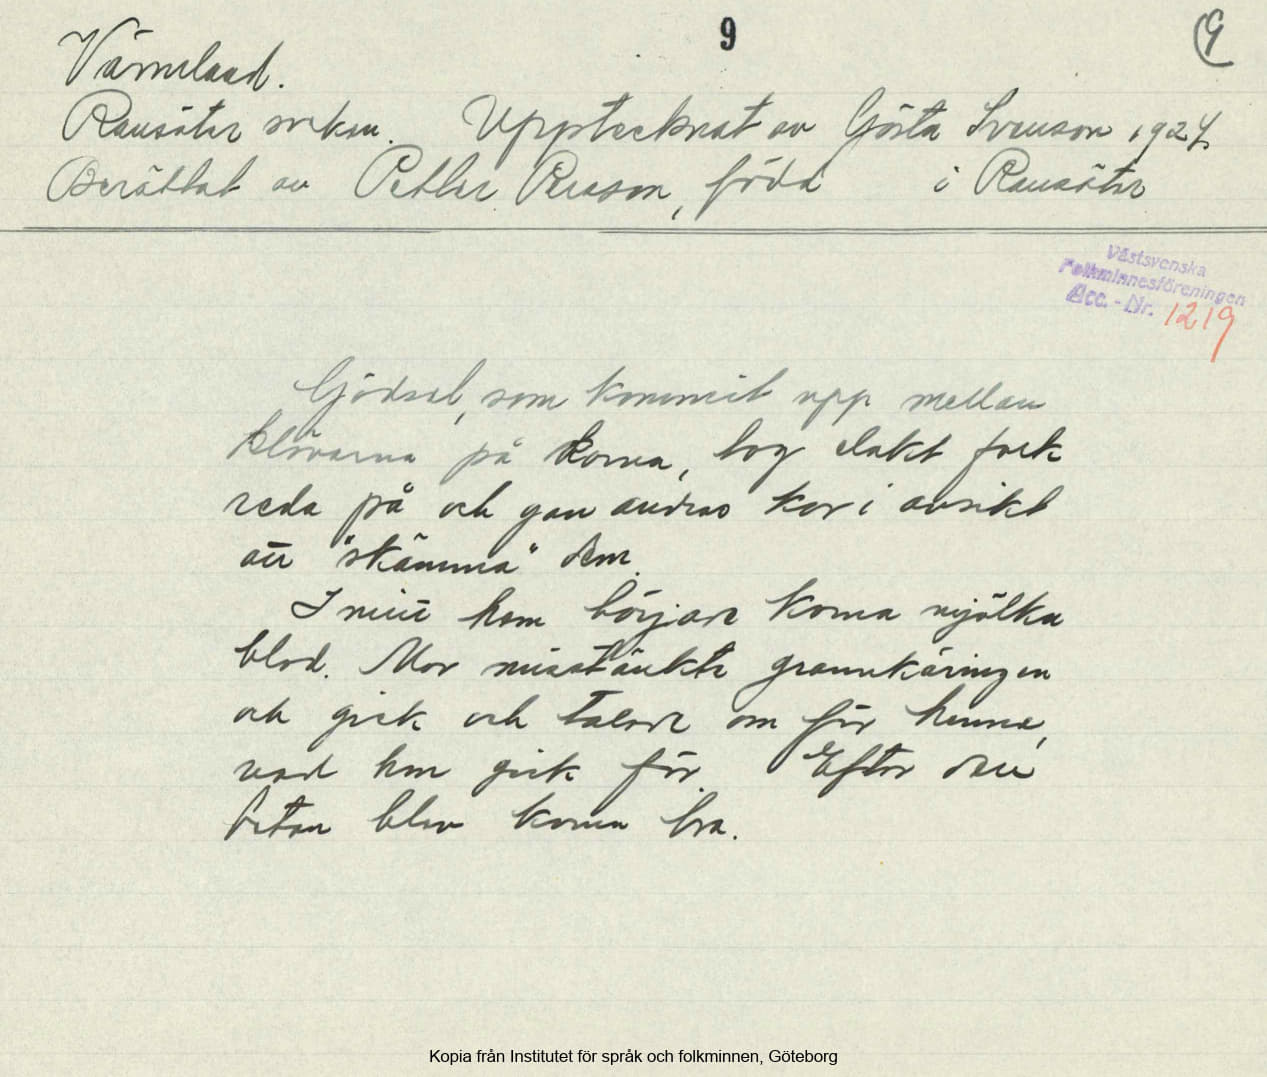 9
9
Värmland.
Ransäter socken. Upptecknat av Gösta Svenson 1924.
Berättat av Petter Persson, född i Ransäter
Västsvenska
Folkminnesföreningen
Acc. - Nr. 1219
Gödsel, som kommit upp mellan
klövarna på korna, tog elakt folk
reda på och gav andras kor i avsikt
att "skämma" dem.
I mitt hem började korna mjölka
blod. Mor misstänkte grannkäringen
och gick och talade om för henne,
vad hon gick för. Efter den
betan blev korna bra.
Kopia från Institutet för språk och folkminnen, Göteborg